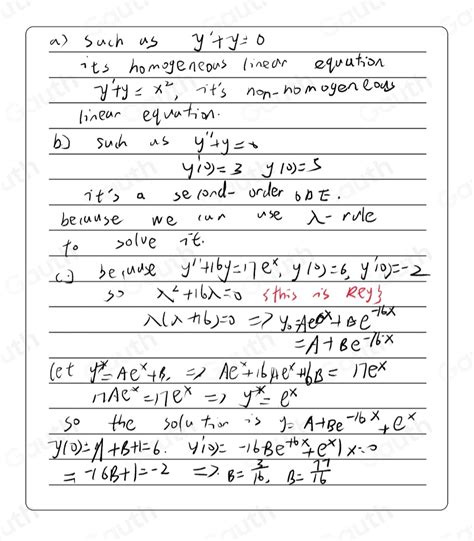 a) such as y'+y=0
its homogeneous linear equation
y'+y = x², it's non-homogeneous
linear equation.
b) such as y''+y=0
y'(0)=3 y(0)=5
it's a second-order ODE.
because we can use λ-rule
to solve it.
c.) because y''+16y=17eˣ, y(0)=6, y'(0)=-2
so λ²+16λ=0 {this is key}
λ(λ+16)=0 => y₀=Ae⁰ˣ+Be⁻¹⁶ˣ
=A+Be⁻¹⁶ˣ
let y*=Aeˣ+B, => Aeˣ+16Aeˣ+16B = 17eˣ
17Aeˣ=17eˣ => y*=eˣ
so the solution is y=A+Be⁻¹⁶ˣ+eˣ
y(0)=A+B+1=6. y'(0)= -16Be⁻¹⁶ˣ+eˣ|x=0
= -16B+1=-2 => B=3/16, B=77/16
Gauth